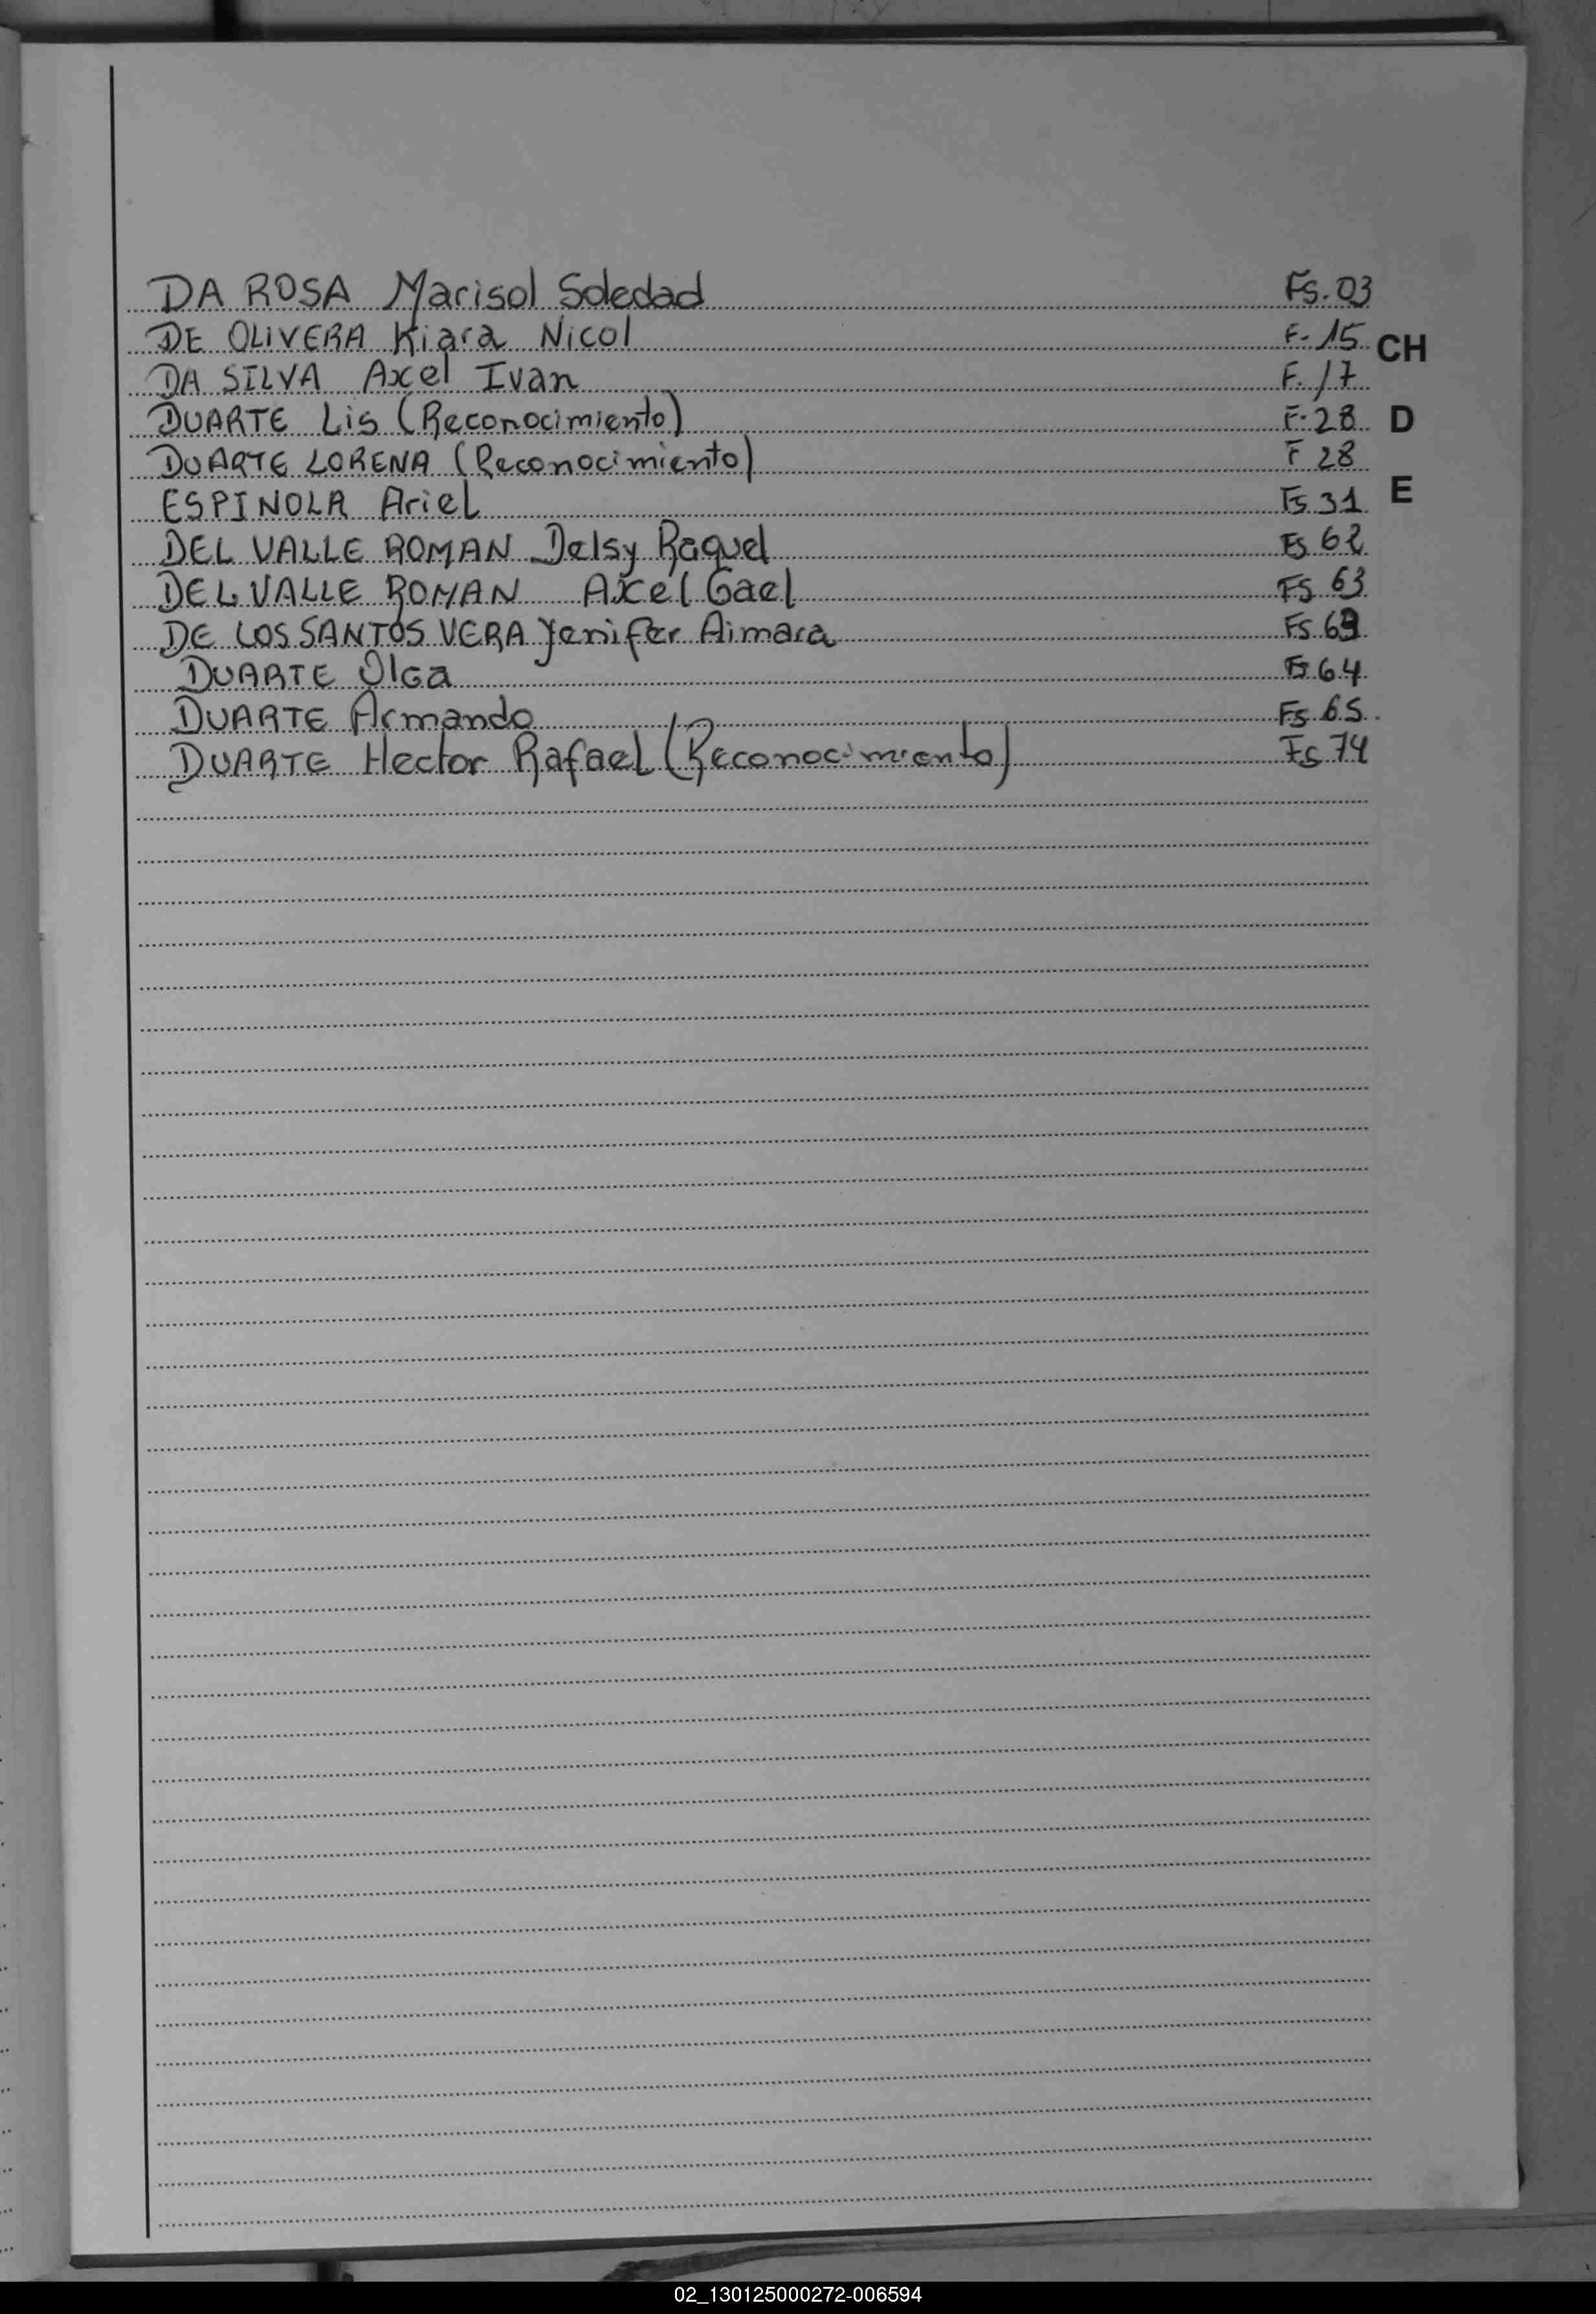 DA ROSA Marisol Soledad Fs. 03
DE OLIVERA Kiara Nicol F. 15
CH
DA SILVA Axel Ivan F. 17
DUARTE Lis (Reconocimiento) F. 28
D
DUARTE LORENA (Reconocimiento) F 28
ESPINOLA Ariel Fs 31
E
DEL VALLE ROMAN Delsy Raquel Fs 62
DEL VALLE ROMAN Axel Gael Fs 63
DE LOS SANTOS VERA Yenifer Aimara Fs
DUARTE Olga Fs 64
DUARTE Armando Fs 65.
DUARTE Hector Rafael (Reconocimiento) Fs 74
02_130125000272-006594